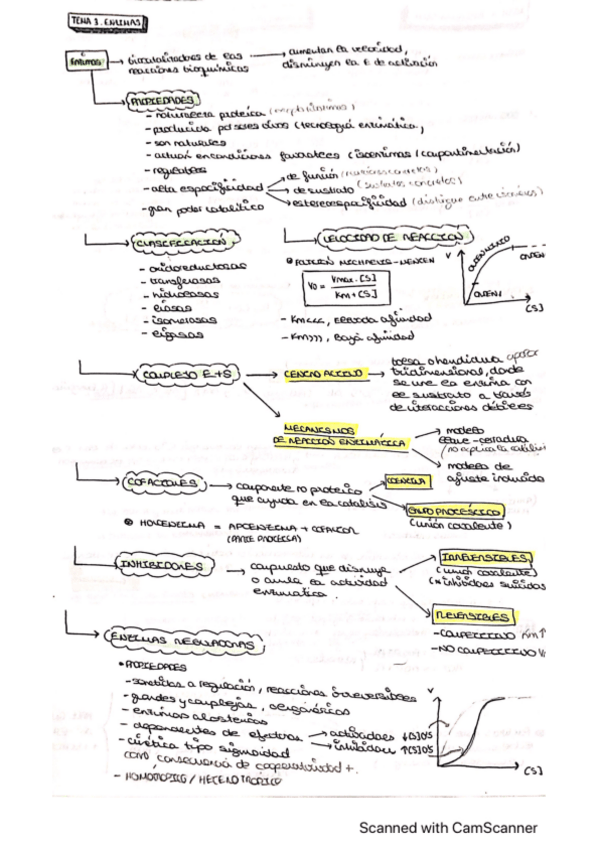 TEMA 3. ENZIMAS
Enzimas
biocatalizadores de las
reacciones bioquímicas
aumentan la velocidad,
disminuyen la E de activación
PROPIEDADES
- naturaleza proteica
- producida por seres vivos (tecnología enzimática)
- son naturales
- actúan en condiciones favorables (isoenzimas / compartimentación)
- regulables
- alta especificidad
de función
de sustrato (sustratos concretos)
estereoespecificidad (distingue entre isómeros)
- gran poder catalítico
CLASIFICACIÓN
- oxidoreductasas
- transferasas
- hidrolasas
- liasas
- isomerasas
- ligasas
VELOCIDAD DE REACCIÓN
V0 = Vmax·[S]
Km+[S]
- Km<<<, elevada afinidad
- Km>>>, baja afinidad
V
[S]
COMPLEJO E+S
CENTRO ACTIVO
bolsa o hendidura
tridimensional, donde
se une la enzima con
el sustrato a través
de interacciones débiles
MECANISMOS
DE REACCIÓN ENZIMÁTICA
modelo
llave-cerradura
(no explica la catálisis
modelo de
ajuste inducido
COFACTORES
componente no proteico
que ayuda en la catálisis
COENZIMA
GRUPO PROSTÉSICO
(unión covalente)
HOLOENZIMA = APOENZIMA + COFACTOR
(PARTE PROTEICA)
INHIBIDORES
compuesto que disminuye
o anula la actividad
enzimática.
IRREVERSIBLES
(unión covalente)
(*inhibidores suicidas
REVERSIBLES
- COMPETITIVO Km↑
- NO COMPETITIVO
ENZIMAS REGULADORAS
• PROPIEDADES
- sometidas a regulación, reacciones irreversibles
- grandes y complejas, oligoméricas
- enzimas alostéricas
- dependientes de efectores
activadores ↓[S]0's
inhibidores ↑[S]0's
- cinética tipo sigmoidal
como consecuencia de cooperatividad +.
- HOMOTRÓPICO / HETEROTRÓPICO
V
[S]
Scanned with CamScanner